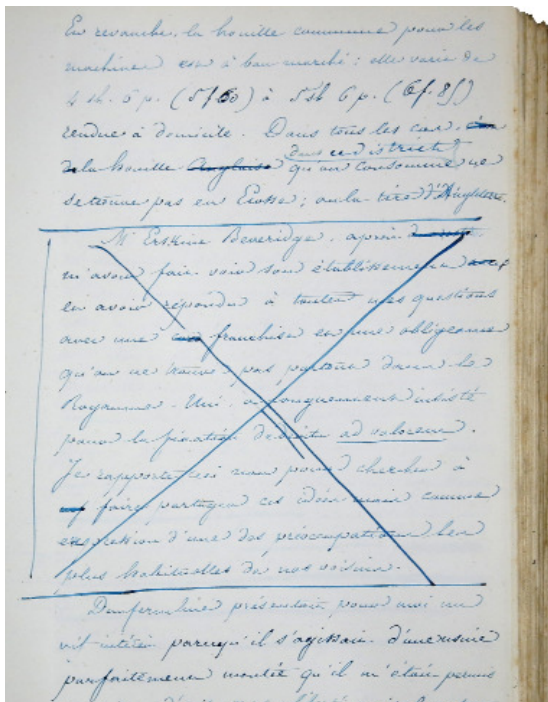 En revanche, la houille commune pour les
machines est à bon marché : elle varie de
4 sh. 6 p. (5f60) à 5 sh 6 p. (6f.85)
rendue à domicile. Dans tous les cas,
la houille Anglaise qu'on consomme
dans ce district ne
se trouve pas en Ecosse ; on la tire d'Angleterre.
Mr Erskine Beveridge, après
m'avoir fait voir son établissement
en avoir répondu à toutes mes questions
avec une franchise et une obligeance
qu'on ne trouve pas partout dans le
Royaume-Uni, a longuement insisté
pour la fixation de droits ad valorem.
Je rapporte ceci non pour chercher à
faire partager ces idées mais comme
expression d'une des préoccupations les
plus habituelles de nos voisins.
Dunfermline présentait pour moi un
vif intérêt parcequ'il s'agissait d'une usine
parfaitement montée qu'il m'était permis